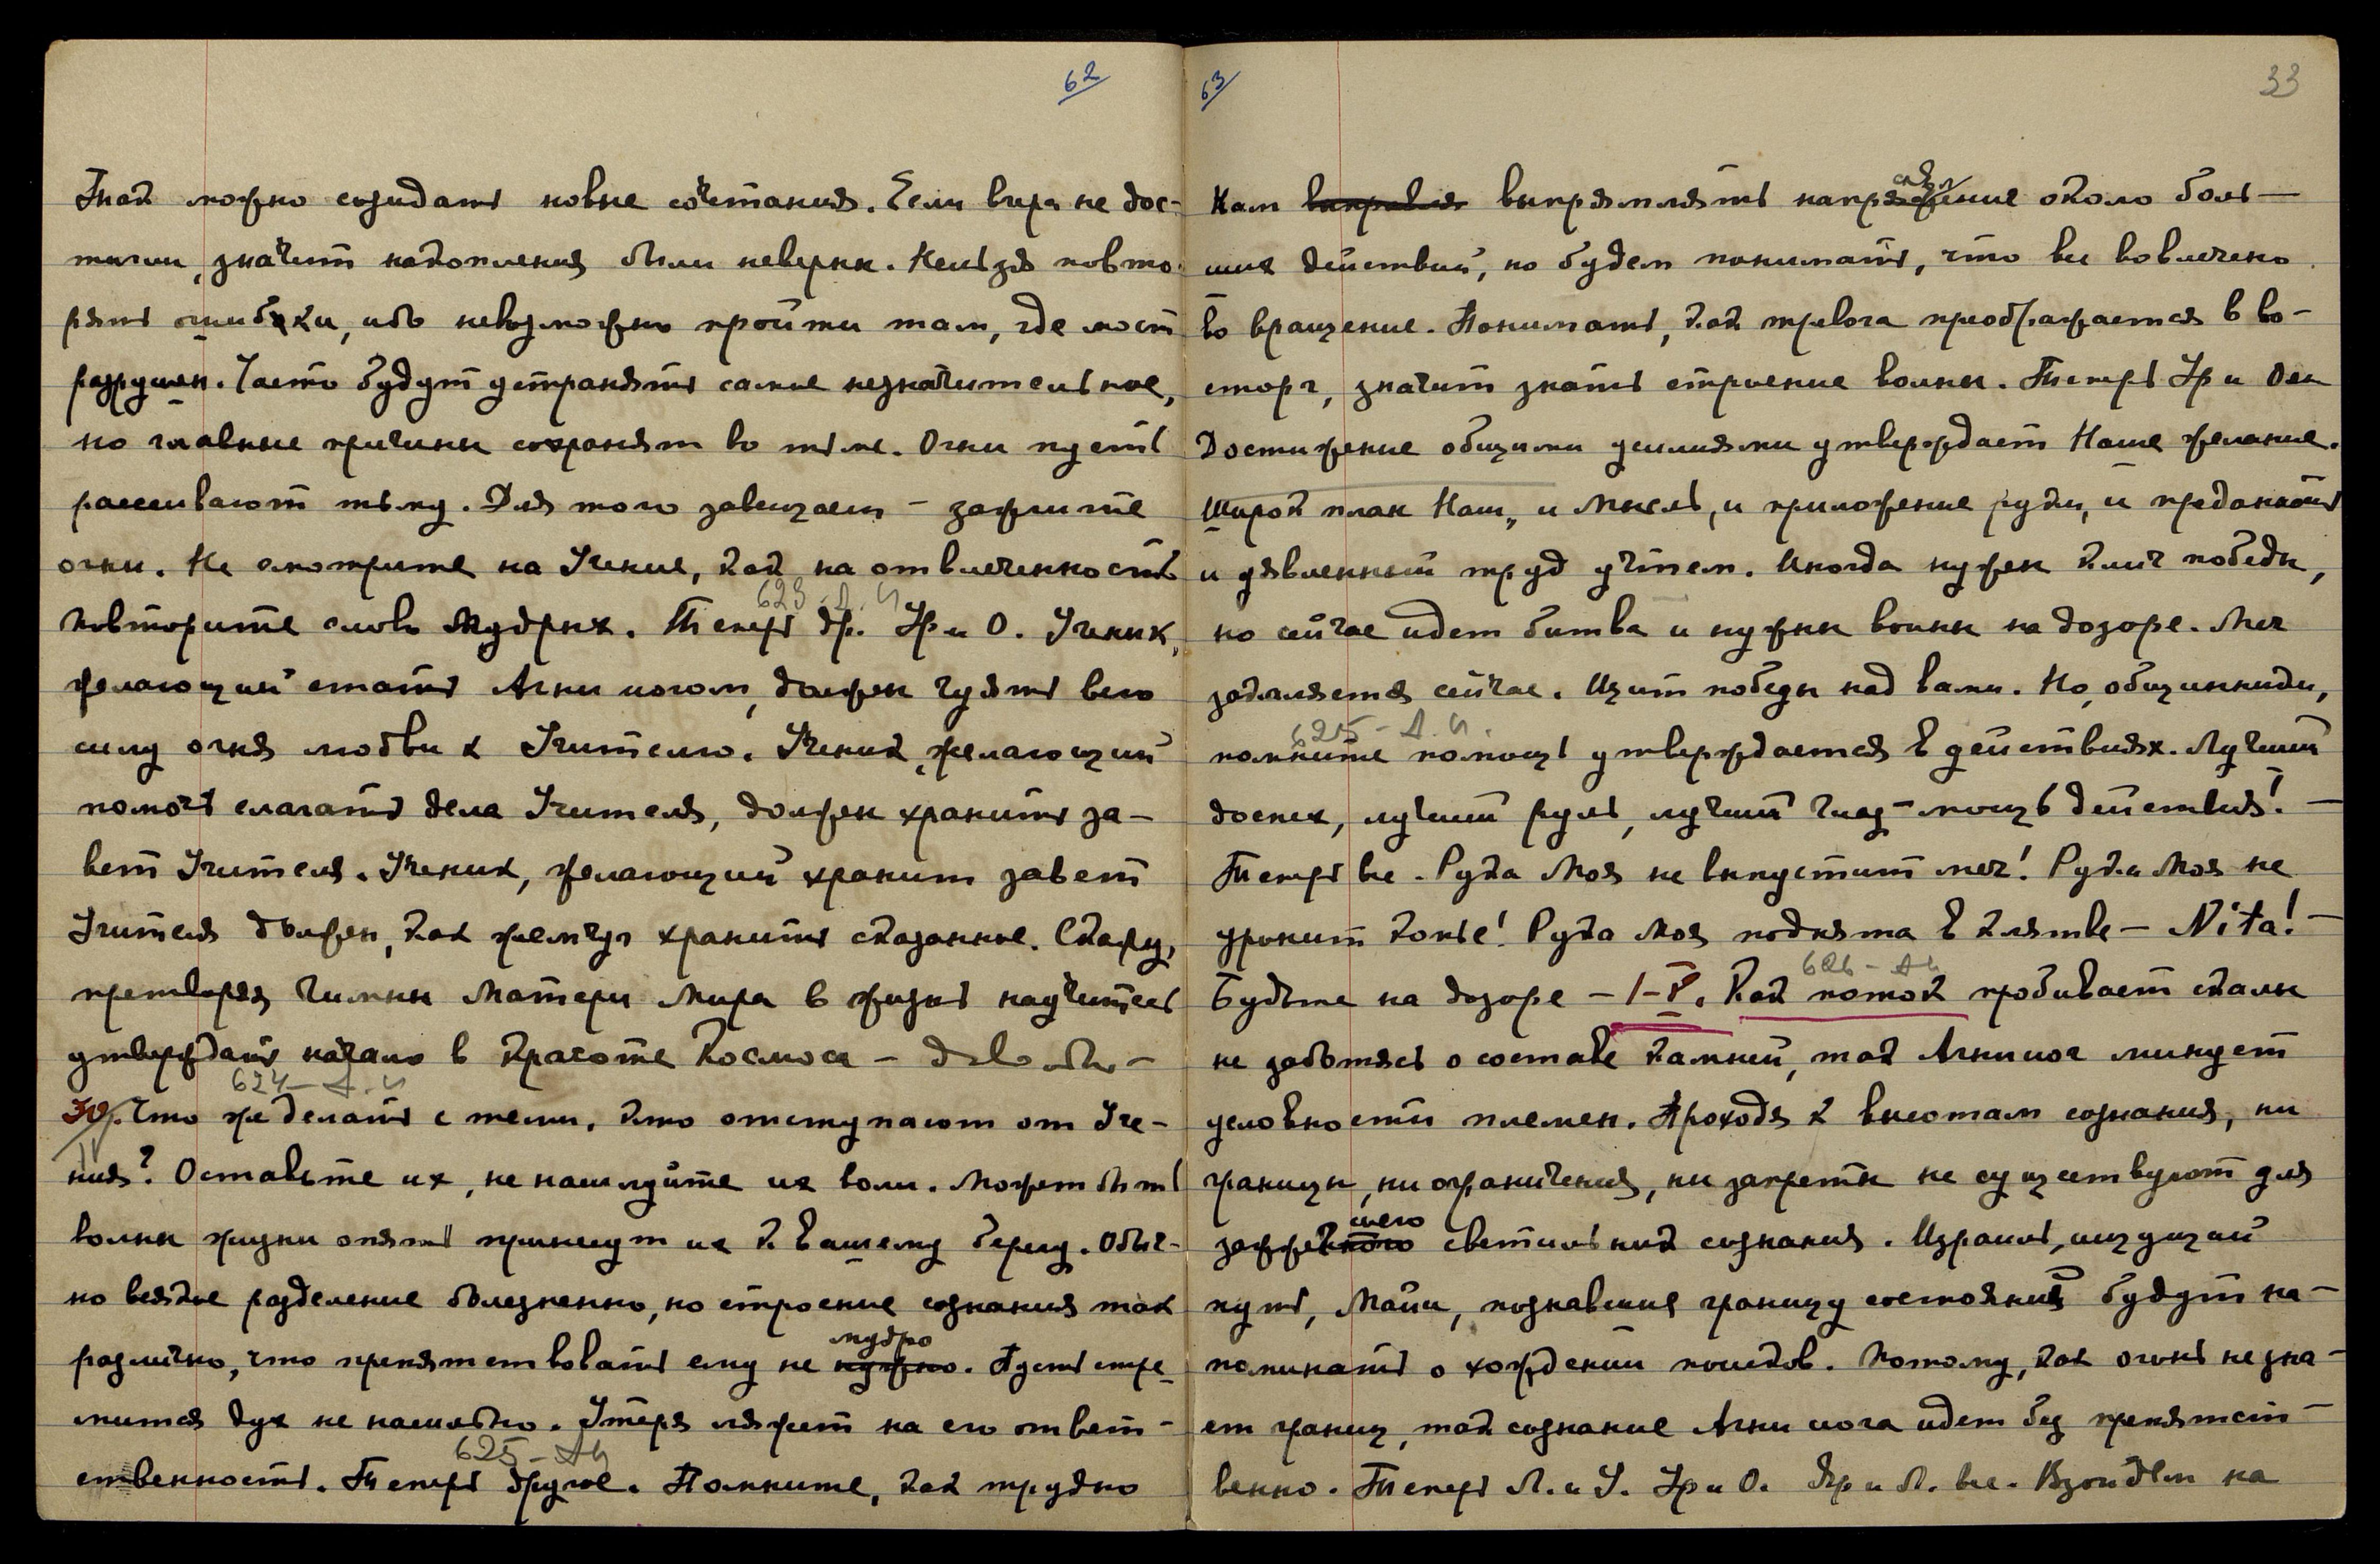 62
Так можно созидать новые сочетания. Если вчера не дос-
тигли, значит накопления были неверны. Нельзя повто-
рять ошибки, ибо невозможно пройти там, где мост
разрушен. Часто будут устранять самые незначительное,
но главные причины сохранят во тьме. Огни пусть
рассеивают тьму. Для того завещаем – зажгите
огни. Не смотрите на Учение, как на отвлеченность
623 – А. И
повторите слово Мудрых. Теперь др. Ур и О. Ученик,
желающий стать Агни иогом, должен чуять всю
силу огня любви к Учителю. Ученик, желающий
помочь слагать дела Учителя, должен хранить за-
вет Учителя. Ученик, желающий храним завет
Учителя должен, как жемчуг хранить сказанное. Скажу,
претворяя гимны Матери Мира в жизнь научитесь
утверждать начало в Красоте Космоса –
624 – А. И
30/IV. Что же делать с теми, кто отступают от Уче-
ния? Оставьте их, не насилуйте их воли. Может быть
волны жизни опять принесут их к Вашему берегу. Обыч-
но всякое разделение болезненно, но строение сознания так
мудро
различно, что препятствовать ему не нужно. Пусть стре-
мится дух не насильно. Утеря ляжет на его ответ-
625 – АИ
ственность. Теперь другое. Помните, как трудно
63
33
Нам выправля выпрямлять напряжение около боль-
ших действий, но будем понимать, что все вовлечено
во вращение. Понимать, как тревога преображается в во-
сторг, значит знать строение волны. Теперь Ур и Оян
Достижение общими усилиями утверждает Наше желание.
Широк план Наш, и мысль, и приложение руки, и преданность
и явленный труд учтем. Иногда нужен клич победы,
но сейчас идет битва и нужны воины на дозоре. Меч
закаляется сейчас. Щит победы над вами. Но, общинники,
625 – А. И.
помните помощь утверждается в действиях. Лучший
доспех, лучший руль, лучший глаз – мощь действия! –
Теперь все. Рука Моя не выпустит меч! Рука Моя не
уронит копье! Рука Моя поднята в клятве – Nita! –
626 – АИ
Будьте на дозоре – 1–V. Как поток пробивает скалы
не заботясь о составе камней, так Агни иог минует
условности племен. Проходя к высотам сознания, ни
границы, ни ограничения, ни запреты не существуют для
шего
зажженного светильник сознания. Израиль, ищущий
путь, Майи, познавшия границу состояний будут на-
поминать о хождении поисков. Потому, как огонь не зна-
ет границ, так сознание Агни иога идет без препятст-
венно. Теперь Л. и У. Ур и О. Яр и Л. все. Взойдем на